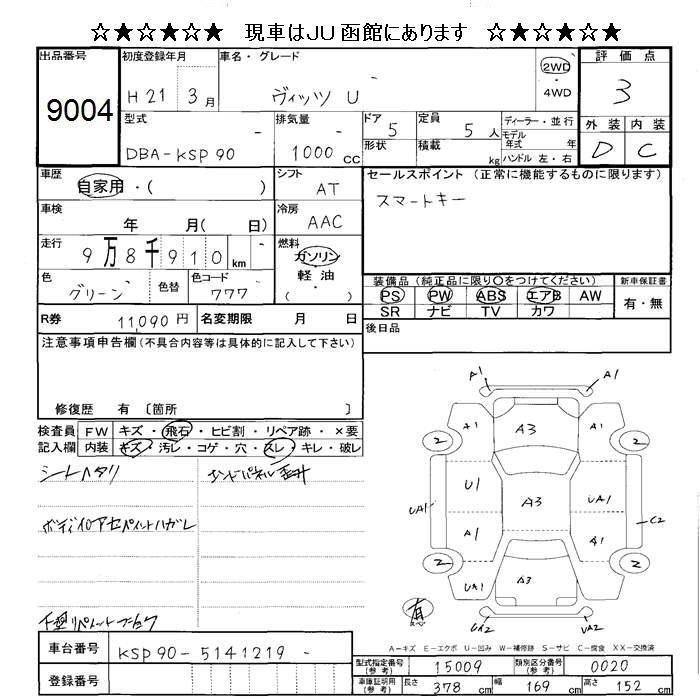 ☆★☆★☆★ 現車はJU函館にあります ☆★☆★☆★
出品番号 初度登録年月 車名・グレード 評価点
9004 H21 3月 ヴィッツ U 2WD ・4WD 3
型式 排気量 ドア 定員 ディーラー・並行 外装 内装
DBA-KSP90 - 1000cc 5 5人 モデル年式 年 D C
形状 積載 kg ハンドル 左・右
車歴 自家用・( ) シフト AT セールスポイント (正常に機能するものに限ります)
スマートキー
車検 年 月( 日) 冷房 AAC
走行 9万8千910km 燃料 ガソリン 軽油 ( )
色 グリーン 色替 色コード 777
装備品(純正品に限り〇をつけてください) 新車保証書
PS PW ABS エアB AW 有・無
SR ナビ TV カワ
R券 11,090円 名変期限 月 日 後日品
注意事項申告欄(不具合内容等は具体的に記入して下さい)
修復歴 有 〔箇所 〕
検査員 FW キズ・飛石・ヒビ割・リペア跡・×要
記入欄 内装 キズ・汚レ・コゲ・穴・スレ・キレ・破レ
シートヘタリ
ボディ色アセペイントハガレ
A1 A1
A1 A3 A1
2 2
U1 UA1
UA1 A3 C2
A1 A1
2 2
UA1 A3
有
UA2 UA2
A-キズ E-エクボ U-凹み W-補修跡 S-サビ C-腐食 XX-交換済
車台番号 KSP90-5141219-
登録番号
型式指定番号(参考) 15009 類別区分番号(参考) 0020
車庫証明用(参考) 長さ 378cm 幅 169cm 高さ 152cm